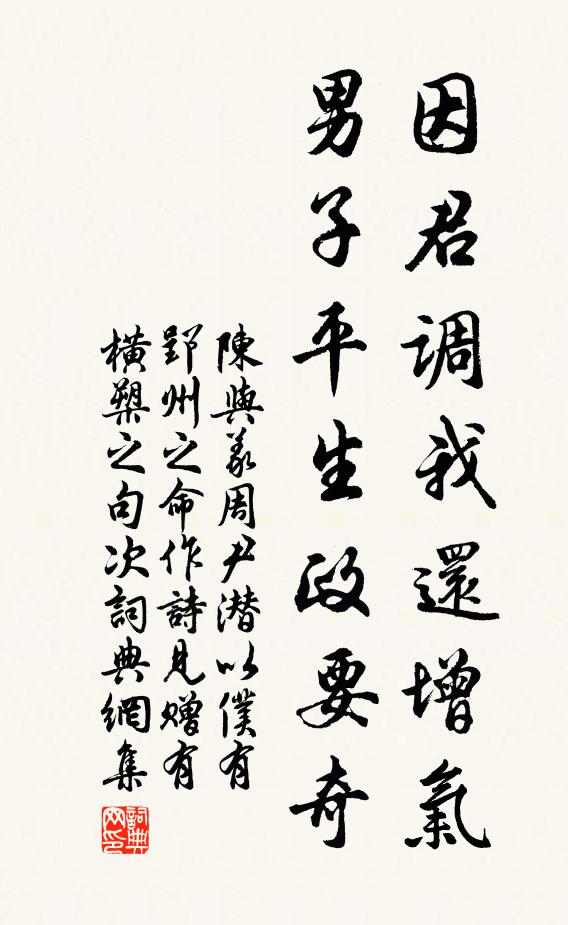 因君調我還增氣
男子平生政要奇
陳與義周尹潛以僕有
郢州之命作詩見贈有
橫槊之句次詞典網集
詞典网印